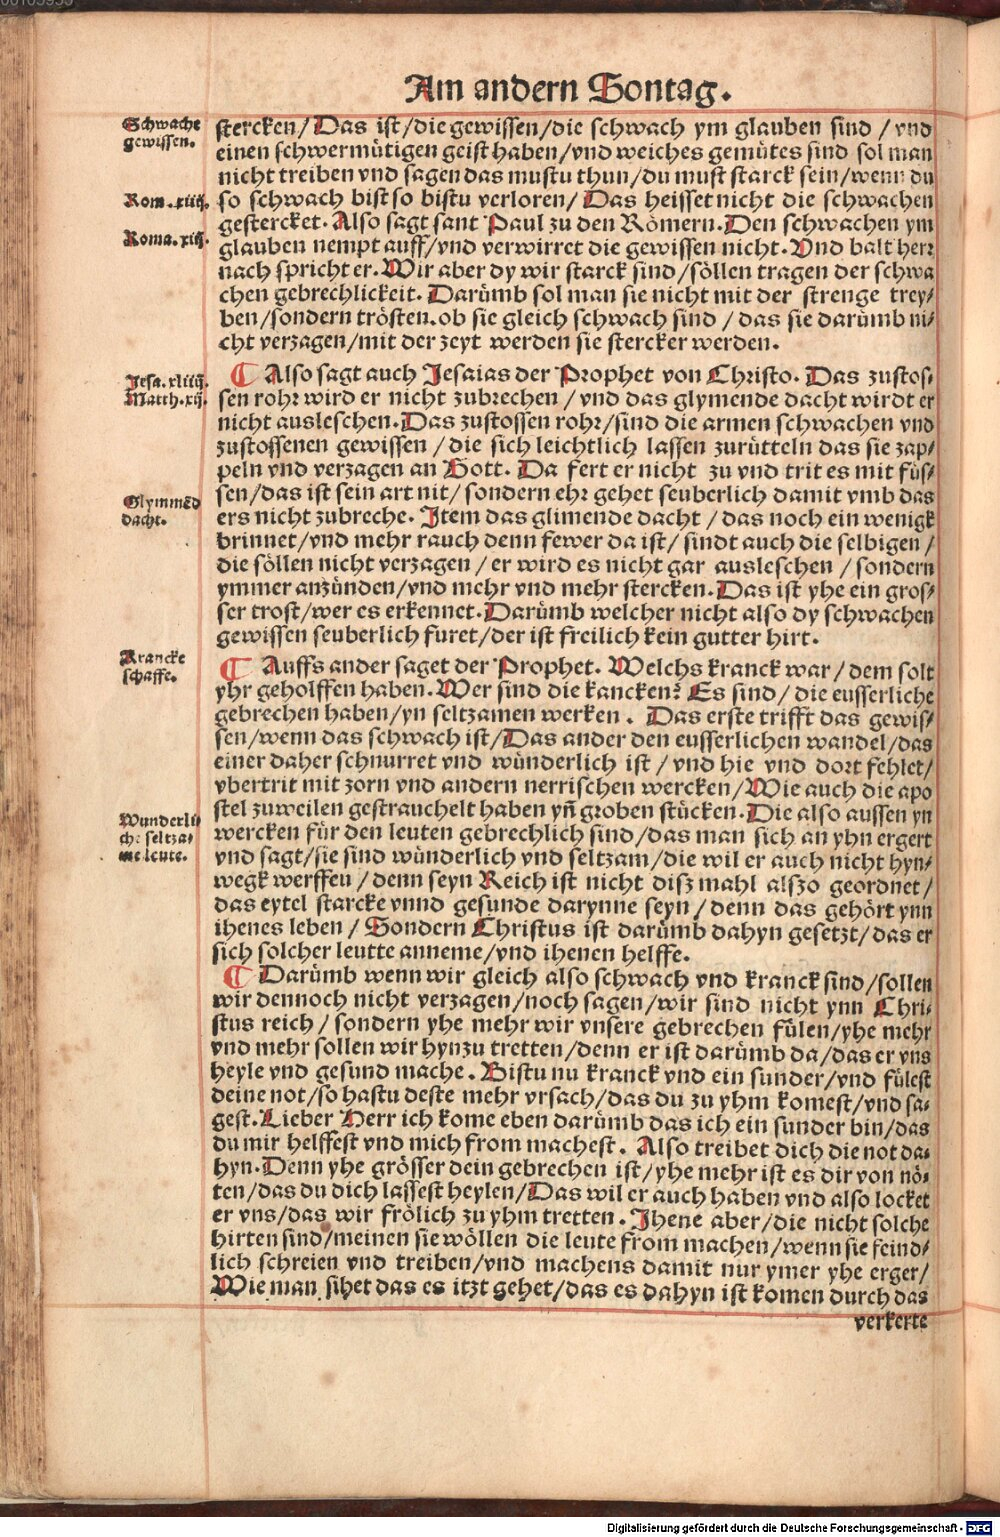 Am andern Sontag.
Schwache
gewissen.
stercken/ Das ist/ die gewissen/ die schwach ym glauben sind / vnd
einen schwermütigen geist haben/ vnd weiches gemütes sind sol man
nicht treiben vnd sagen das mustu thun/ du must starck sein/ wenn du
Rom. xiiij.
so schwach bist so bistu verloren/ Das heisset nicht die schwachen
gestercket. Also sagt sant Paul zu den Römern. Den schwachen ym
Roma. xiij.
glauben nempt auff/ vnd verwirret die gewissen nicht. Vnd balt herr
nach spricht er. Wir aber dy wir starck sind/ söllen tragen der schwa
chen gebrechlickeit. Darümb sol man sie nicht mit der strenge trey/
ben/ sondern trösten. ob sie gleich schwach sind / das sie darümb ni/
cht verzagen/ mit der zeyt werden sie stercker werden.
Jesa. xliiij.
Matth. xij.
¶ Also sagt auch Jesaias der Prophet von Christo. Das zustos/
sen rohr wird er nicht zubrechen / vnd das glymende dacht wirdt er
nicht ausleschen. Das zustossen rohr/ sind die armen schwachen vnd
zustossenen gewissen / die sich leichtlich lassen zurütteln das sie zap/
peln vnd verzagen an Gott. Da fert er nicht zu vnd trit es mit füs/
Glymmēd
dacht.
sen/ das ist sein art nit/ sondern ehr gehet seuberlich damit vmb das
ers nicht zubreche. Item das glimende dacht / das noch ein wenigk
brinnet/ vnd mehr rauch denn fewer da ist/ sindt auch die selbigen /
die söllen nicht verzagen / er wird es nicht gar ausleschen / sondern
ymmer anzünden/ vnd mehr vnd mehr stercken. Das ist yhe ein gros/
ser trost/ wer es erkennet. Darümb welcher nicht also dy schwachen
gewissen seuberlich furet/ der ist freilich kein gutter hirt.
Krancke
schaffe.
¶ Auffs ander saget der Prophet. Welchs kranck war/ dem solt
yhr geholffen haben. Wer sind die kancken? Es sind/ die eusserliche
gebrechen haben/ yn seltzamen werken. Das erste trifft das gewis/
sen/ wenn das schwach ist/ Das ander den eusserlichen wandel/ das
einer daher schnurret vnd wünderlich ist / vnd hie vnd dort fehlet/
vbertrit mit zorn vnd andern nerrischen wercken/ Wie auch die apo
stel zuweilen gestrauchelt haben yñ groben stücken. Die also aussen yn
Wunderli
che seltza/
me leute.
wercken für den leuten gebrechlich sind/ das man sich an yhn ergert
vnd sagt/ sie sind wünderlich vnd seltzam/ die wil er auch nicht hyn/
wegk werffen / denn seyn Reich ist nicht disz mahl alszo geordnet/
das eytel starcke vnnd gesunde darynne seyn / denn das gehört ynn
ihenes leben / Sondern Christus ist darümb dahyn gesetzt/ das er
sich solcher leutte anneme/ vnd ihenen helffe.
¶ Darümb wenn wir gleich also schwach vnd kranck sind/ sollen
wir dennoch nicht verzagen/ noch sagen/ wir sind nicht ynn Chri/
stus reich / sondern yhe mehr wir vnsere gebrechen fülen/ yhe mehr
vnd mehr sollen wir hynzu tretten/ denn er ist darümb da/ das er vns
heyle vnd gesund mache. Bistu nu kranck vnd ein sunder/ vnd fülest
deine not/ so hastu deste mehr vrsach/ das du zu yhm komest/ vnd sa/
gest. Lieber Herr ich kome eben darümb das ich ein sunder bin/ das
du mir helffest vnd mich from machest. Also treibet dich die not da/
hyn. Denn yhe grösser dein gebrechen ist/ yhe mehr ist es dir von nö/
ten/ das du dich lassest heylen/ Das wil er auch haben vnd also locket
er vns/ das wir frölich zu yhm tretten. Ihene aber/ die nicht solche
hirten sind/ meinen sie wöllen die leute from machen/ wenn sie feind/
lich schreien vnd treiben/ vnd machens damit nur ymer yhe erger/
Wie man sihet das es itzt gehet/ das es dahyn ist komen durch das
verkerte
Digitalisierung gefördert durch die Deutsche Forschungsgemeinschaft - DFG